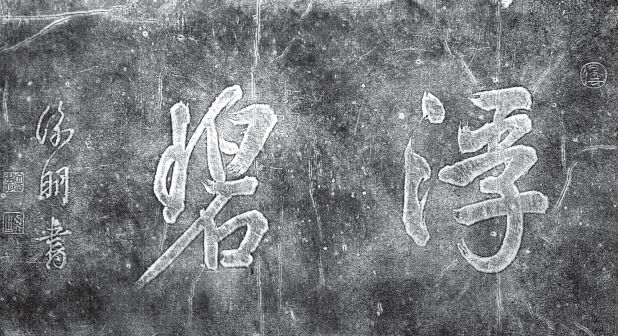 浮碧
徵明書